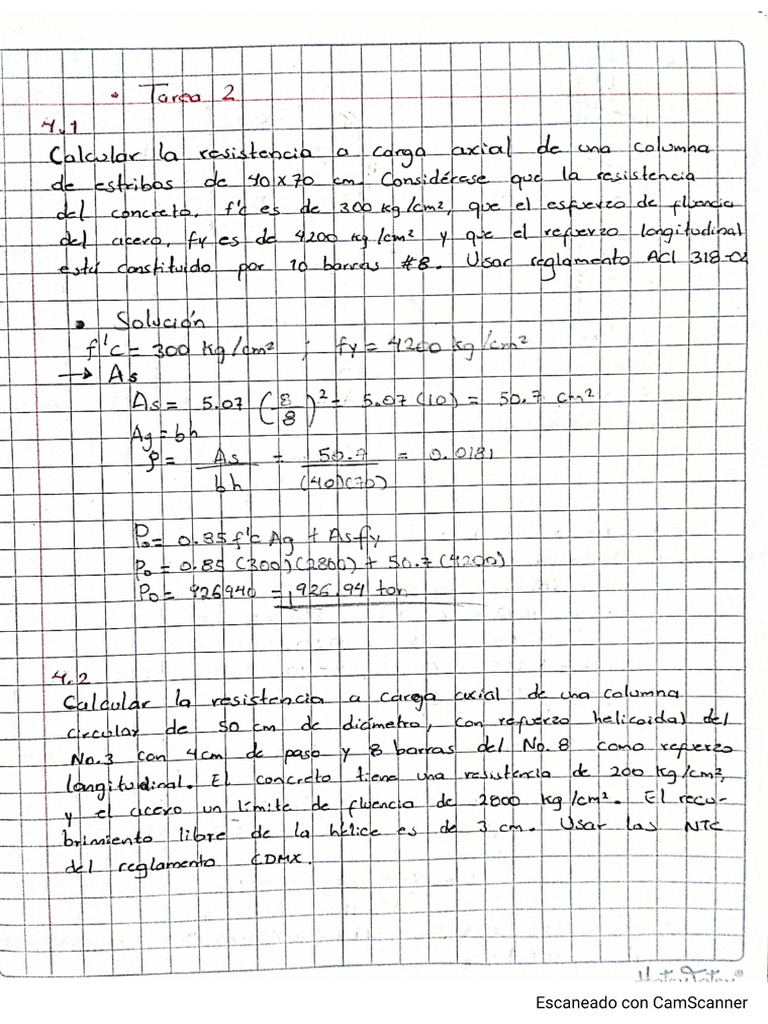 • Tarea 2
4.1
Calcular la resistencia a carga axial de una columna
de estribos de 40x70 cm. Considérese que la resistencia
del concreto, f'c es de 300 kg/cm², que el esfuerzo de fluencia
del acero, fy es de 4200 kg/cm² y que el refuerzo longitudinal
está constituido por 10 barras #8. Usar reglamento ACI 318-02
• Solución
f'c = 300 kg/cm² ; fy = 4200 kg/cm²
→ As
As = 5.07 (8/8)² = 5.07 (10) = 50.7 cm²
Ag = bh
ρ = As/bh = 50.7/(40)(70) = 0.0181
Po = 0.85 f'c Ag + As fy
Po = 0.85 (300)(2800) + 50.7 (4200)
Po = 926940 = 926.94 ton
4.2
Calcular la resistencia a carga axial de una columna
circular de 50 cm de diámetro, con refuerzo helicoidal del
No.3 con 4cm de paso y 8 barras del No. 8 como refuerzo
longitudinal. El concreto tiene una resistencia de 200 kg/cm²,
y el acero un límite de fluencia de 2800 kg/cm². El recu-
brimiento libre de la hélice es de 3 cm. Usar las NTC
del reglamento CDMX.
Escaneado con CamScanner